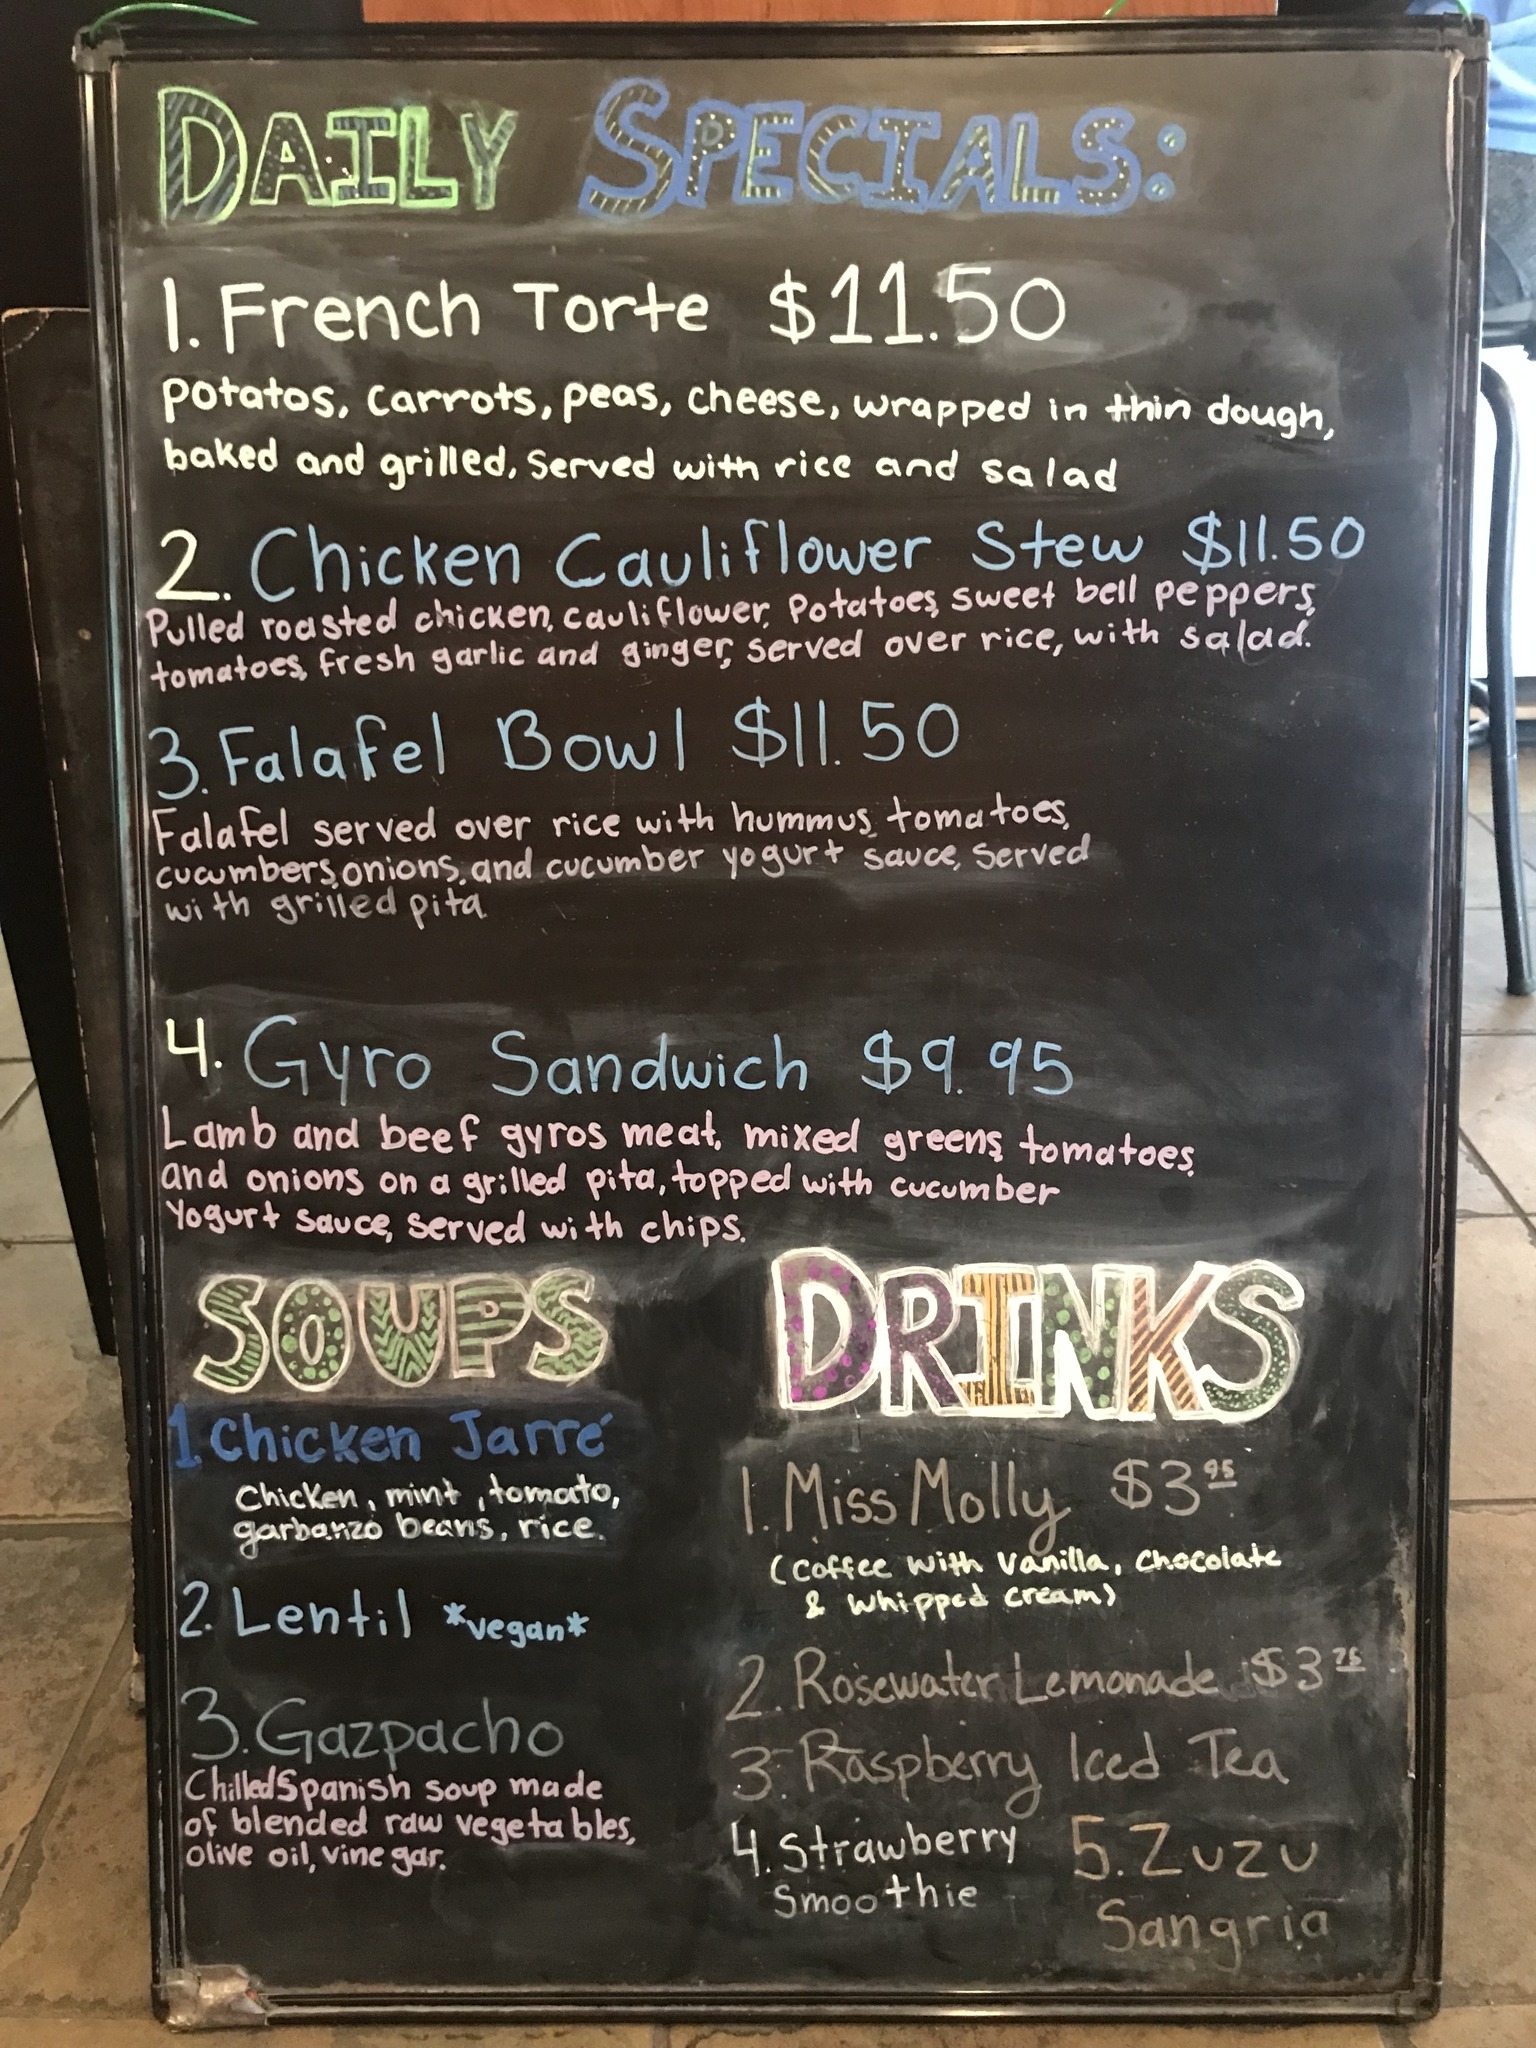 DAILY SPECIALS:
1. French Torte $11.50
Potatos, carrots, peas, cheese, wrapped in thin dough,
baked and grilled, served with rice and salad
2. Chicken Cauliflower Stew $11.50
Pulled roasted chicken, cauliflower, Potatoes, sweet bell peppers,
tomatoes, fresh garlic and ginger, served over rice, with salad.
3. Falafel Bowl $11.50
Falafel served over rice with hummus, tomatoes,
cucumbers, onions, and cucumber yogurt sauce, served
with grilled pita
4. Gyro Sandwich $9.95
Lamb and beef gyros meat, mixed greens, tomatoes,
and onions on a grilled pita, topped with cucumber
Yogurt sauce, served with chips.
SOUPS
1. Chicken Jarré
Chicken, mint, tomato,
garbanzo beans, rice.
2. Lentil *vegan*
3. Gazpacho
Chilled Spanish soup made
of blended raw vegetables,
olive oil, vinegar.
DRINKS
1. Miss Molly $3 95
(coffee with Vanilla, chocolate
& whipped cream)
2. Rosewater Lemonade $3 75
3. Raspberry Iced Tea
4. Strawberry
Smoothie
5. Zuzu
Sangria